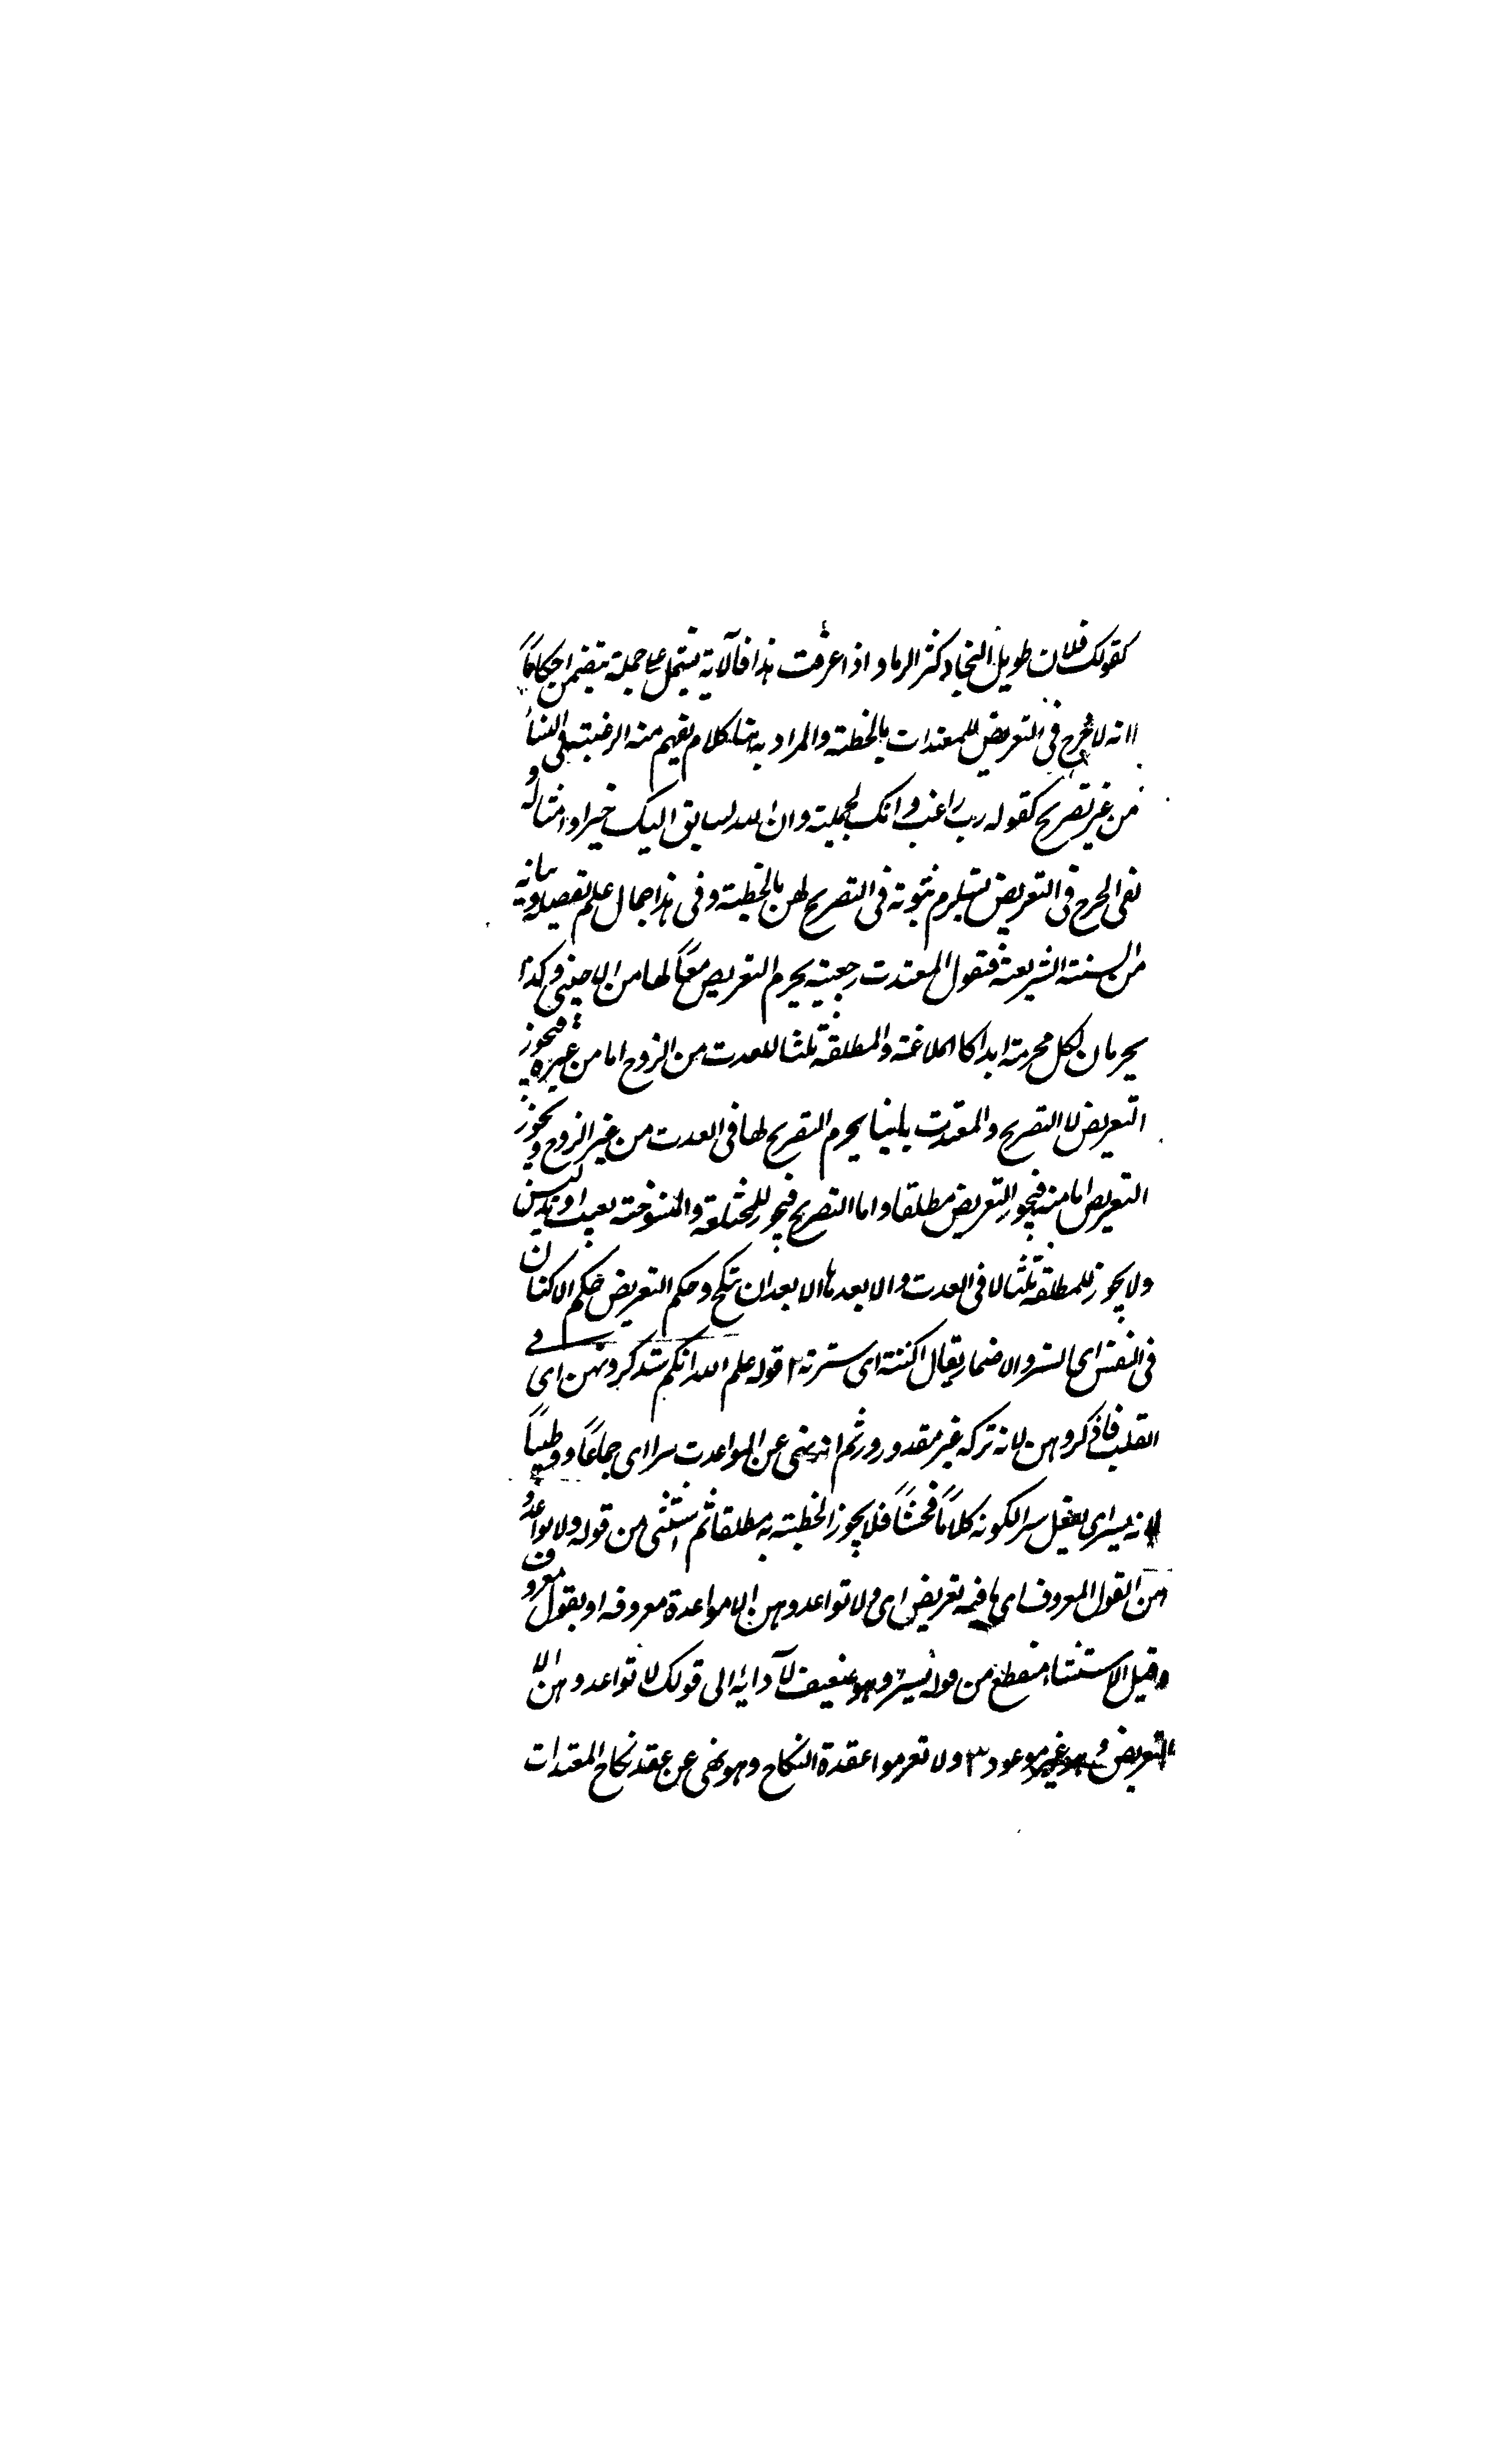 كقولك فلان طويل النجاد كثر الرماد اذا عرفت هذا فالآية يشتمل على جملة يتضمن احكاماً
ا انه لا حرج فى التعريض للمعتدات بالخطبة والمراد به هنا كلام يفهم منه الرغبة فى النساء
من غير تصريح كقوله رب راغب فيك وانك لجميلة وان الله لسابق اليك خيرا وامثاله و
نفى الحرج فى التعريض يستلزم ثبوته فى التصريح لهن بالخطبة وفى هذا جمال علم تفصيله وبيانه
من السنة الشريفة فنقول المعتدت رجعية يحرم التعريض معاً لها من الاجنبى وكذا
يحرمان لكل محرمة ابدا كالملاعنة والمطلقة ثلثا للعدت من الزوج اما من غيره فيجوز
التعريض لا التصريح والمعتدت باينا يحرم التصريح لها فى العدت من غير الزوج ويجوز
التعريض اما منه فيجوز التعريض مطلقا واما التصريح فيجوز للمختلعة والمنسوخة بعيب او تدليس
ولا يجوز للمطلقة ثلثا لا فى العدت ولا بعدها الا بعد ان تنكح وحكم التعريض حكم الاكنان
فى النفس اى الستر والاضمار يقال اكننته اى سترته ٢ قوله علم الله انكم ستذكرونهن اى فى
القلب فاذكروهن لانه تركه غير مقدور ثم انه نهى عن المواعدت سرا اى جماعاً ووطياً
لانه يسر اى يفعل سرا لكونه كلاماً فحشاً فلا يجوز الخطبة به مطلقا ثم استثنى من قوله ولا تواعدو
هن القول المعروف اى ما فيه تعريض اى ولا تواعدوهن الا مواعدة معروفه او بقول معروف
وقيل الاستثناء منقطع من قوله سراً وهو ضعيف لآدائه الى قولك لا تواعدوهن الا
التعريض وهو غير موعود ٣ ولا تعزموا عقدة النكاح وهو نهى عن عقد نكاح المعتدات